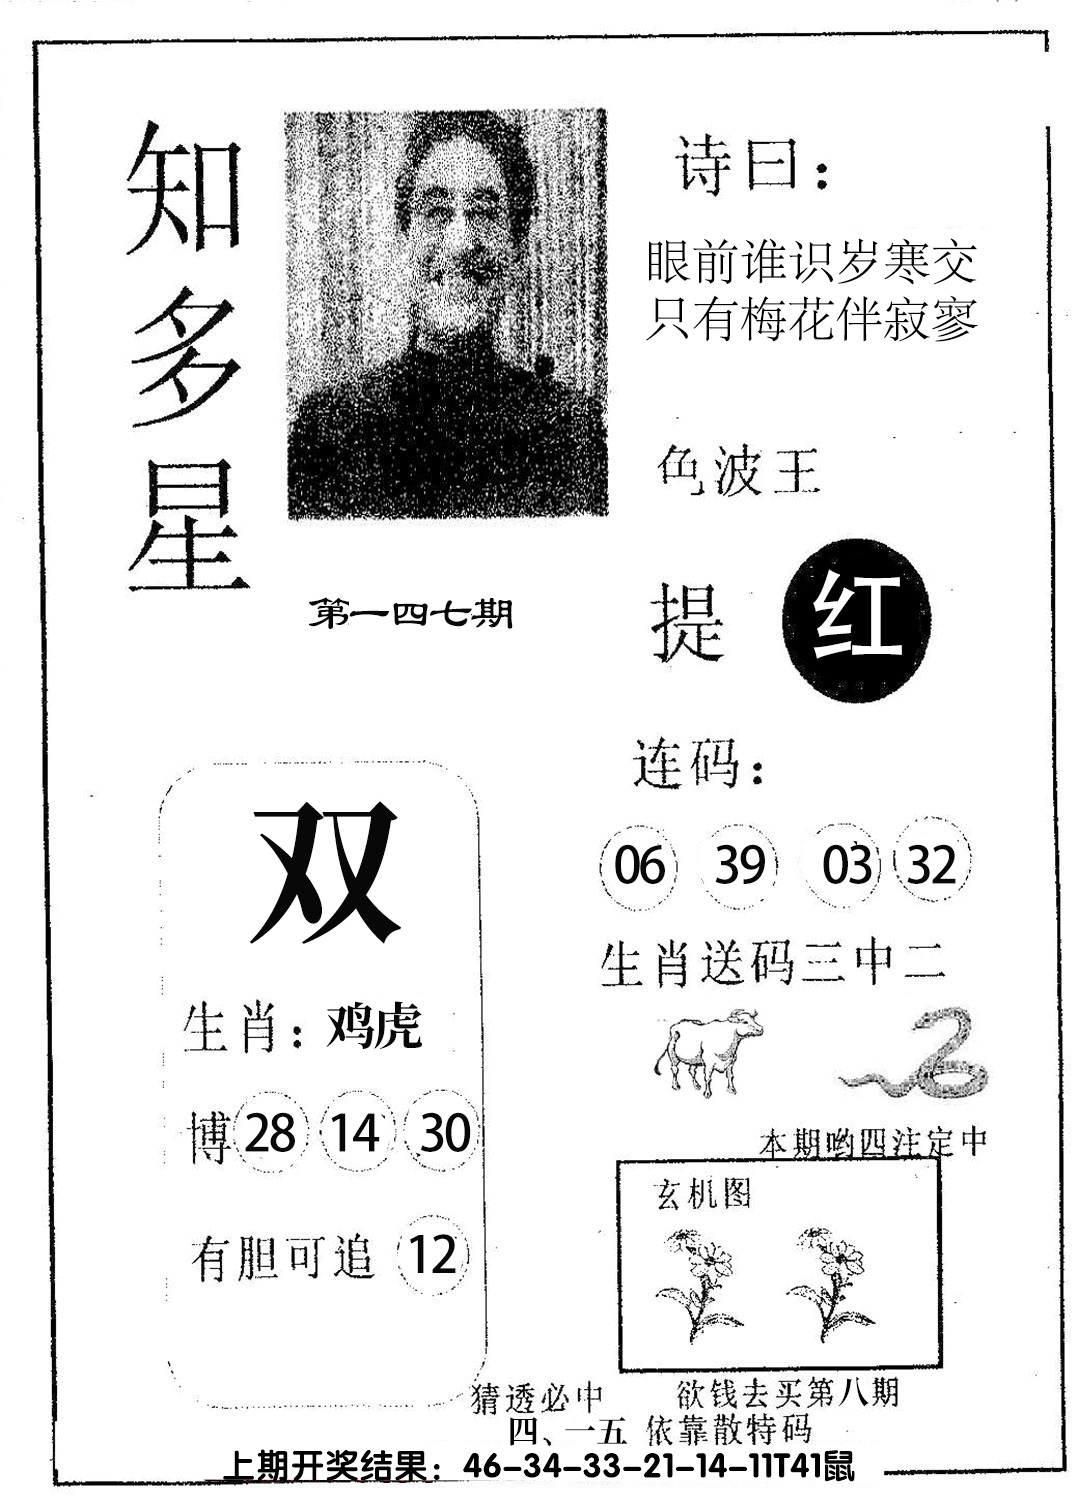 知多星
诗曰：
眼前谁识岁寒交
只有梅花伴寂寥
色波王
第一四七期
提 红
连码：
06 39 03 32
双
生肖送码三中二
生肖：鸡虎
博 28 14 30
本期哟四注定中
玄机图
有胆可追 12
猜透必中 欲钱去买第八期
四、一五 依靠散特码
上期开奖结果：46-34-33-21-14-11T41鼠